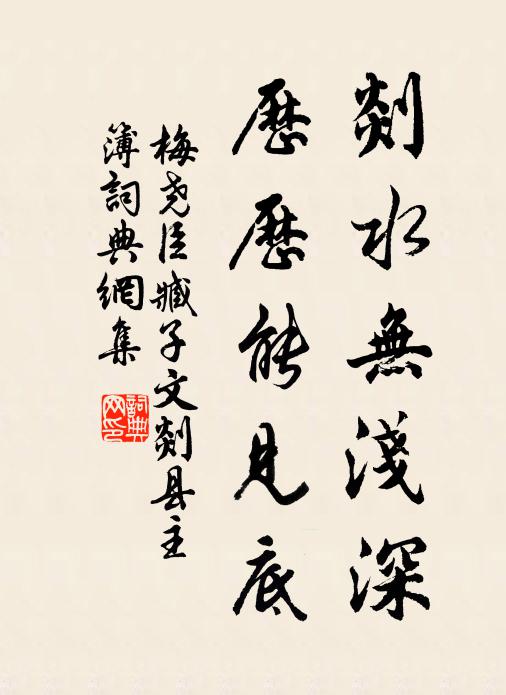 剡水無淺深
歷歷能見底
梅堯臣臧子文剡县主
簿詞典網集
詞典
网印